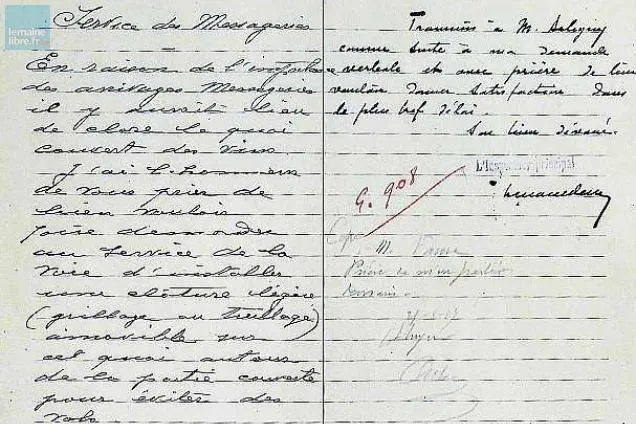 lemaine
libre.fr
Service des Messageries
En raison de l'importance
des arrivages Messageries
il y aurait lieu
de clore le quai
couvert des vins.
J'ai l'honneur
de vous prier de
bien vouloir
faire demander
au service de la
voie d'installer
une clôture légère
(grillage ou treillage)
amovible sur
cet quai autour
de la partie couverte
pour éviter des
vols
Transmis à M.
comme suite à ma demande
verbale et avec prière de bien
vouloir donner satisfaction dans
le plus bref délai.
Son bien dévoué.
L'Inspecteur principal
G. 908
M.
Prière de m'en parler
demain.